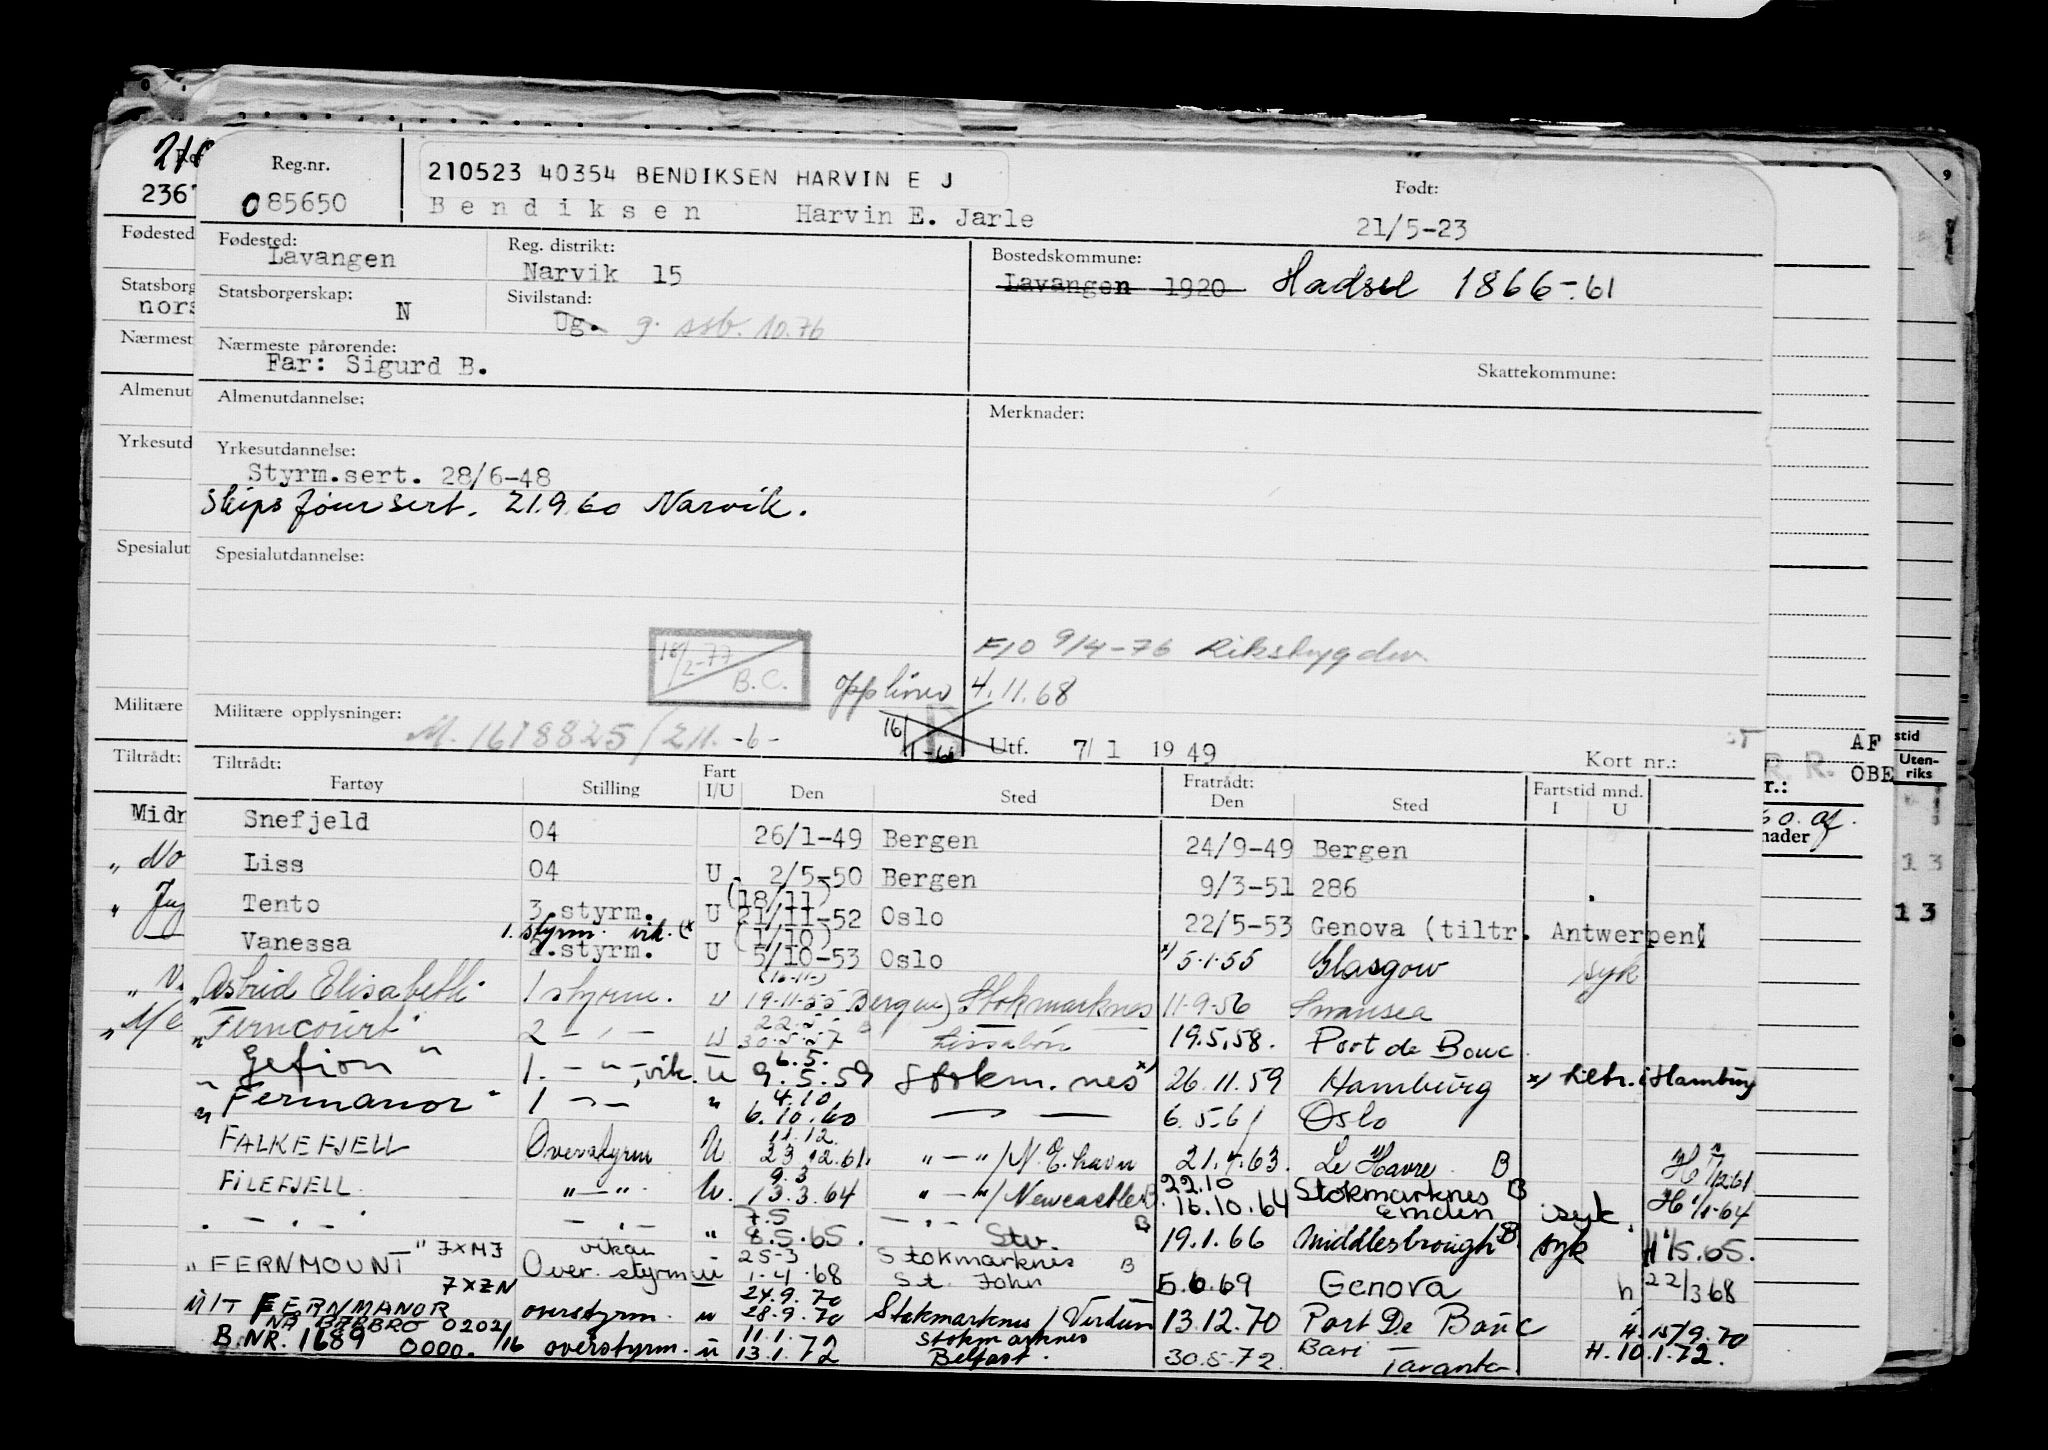 Reg.nr.
085650
210523 40354 BENDIKSEN HARVIN E J
Bendiksen Harvin E. Jarle
Født:
21/5-23
2367
Fødested:
Lavangen
Reg. distrikt:
Narvik 15
Bostedskommune:
Lavangen 1920 Hadsel 1866-61
Statsborgerskap:
N
Sivilstand:
Ug. g. ssb. 10.76
Nærmeste pårørende:
Far: Sigurd B.
Skattekommune:
Almenutdannelse:
Merknader:
Yrkesutdannelse:
Styrm.sert. 28/6-48
Skipsførersert. 21.9.60 Narvik.
Spesialutdannelse:
18/2-77
B.C.
F/O 9/4-76 Riksbygden
4.11.68
Militære opplysninger:
M. 1678825/211. -6-
16/1-61
Utf. 7/1 1949
Kort nr.:
Tiltrådt:
Fartøy Stilling Fart I/U Den Sted Fratrådt: Den Sted Fartstid mnd. I U
Snefjeld 04 26/1-49 Bergen 24/9-49 Bergen
Liss 04 U 2/5-50 Bergen 9/3-51 286
(18/11)
Tento 3.styrm. U 21/11-52 Oslo 22/5-53 Genova (tiltr. Antwerpen)
1. styrm. vik. (x (1/10)
Vanessa 2.styrm. U 5/10-53 Oslo x) 5.1.55 Glasgow syk
(16-11-)
"Astrid Elisabeth" 1 styrm. U 19-11-55 Bergen) Stokmarknes 11-9-56 Swansea
22.5
"Ferncourt" 2 - " - U 30.5.57 Lissabon 19.5.58. Port de Bouc
6.5.
Gefion " 1. - " -, vik. U 9.5.59 Stokm.nes x) 26.11.59 Hamburg x) tiltr. i Hamburg
4.10
"Fernmanor" 1 - " - " 6.10.60 — — 6.5.61 Oslo
11.12.
FALKEFJELL Overstyrm U 23.12.61. " - " / N. E. havn 21.4.63. Le Havre B H 7/12 61
9.3 22.10
FILEFJELL. " - " U. 13.3.64 " - " / Newcastle B 16.10.64 Stokmarknes Emden B syk H 1/1-64
7.5
" - " - " - " - " 8.5.65. Stv. B 19.1.66 Middlesbrough B. syk H 1/5.65.
vikar 25-3 Stokmarknes
"FERNMOUNT" JXMJ Over. styrm U 1.4.68 St. John B 5.6.69 Genova h 22/3 68
JXZN 24.9.70
M/T FERNMANOR overstyrm. u 28.9.70 Stokmarknes / Verdun 13.12.70 Port De Bouc H. 15/9.70
NÅ BARBRO 0202/16 11.1. Stokmarknes
B.NR. 1689 0000. overstyrm. u 13.1.72 Belfast. 30.5.72. Bari Taranto H. 10.1.72.